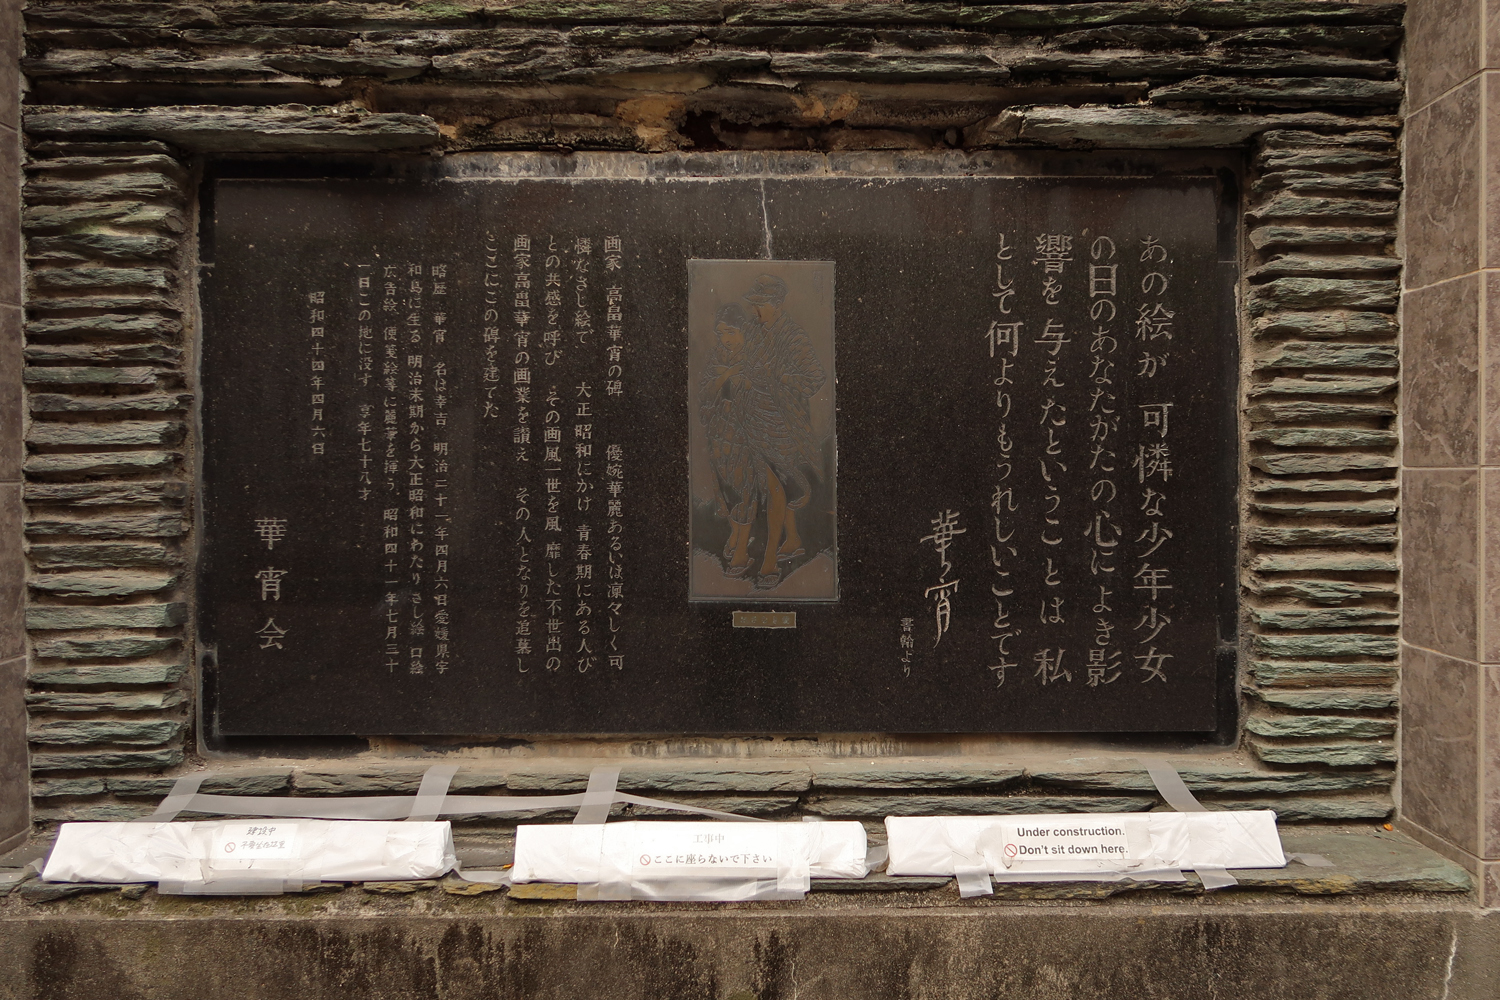 あの絵が 可憐な少年少女
の日のあなたがたの心によき影
響を与えたということは 私
として何よりもうれしいことです
華宵
書翰より
画家 高畠華宵の碑 優婉華麗あるいは凛々しく可
憐なさし絵で 大正昭和にかけ 青春期にある人び
との共感を呼び その画風一世を風靡した不世出の
画家高畠華宵の画業を讃え その人となりを追慕し
ここにこの碑を建てた
略歴 華宵 名は幸吉 明治二十一年四月六日愛媛県宇
和島に生る 明治末期から大正昭和にわたりさし絵 口絵
広告絵 便箋絵等に麗筆を揮う 昭和四十一年七月三十
一日この地に没す 享年七十八才
昭和四十四年四月六日
華宵会
建設中
不要坐在這里
工事中
ここに座らないで下さい
Under construction.
Don't sit down here.